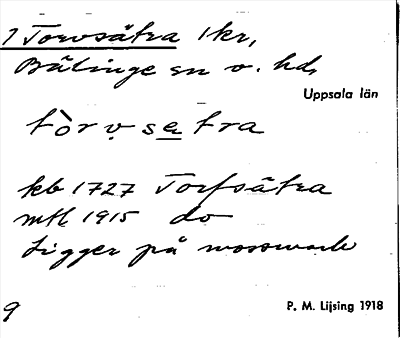 1 Torvsätra 1 kr,
Bälinge sn o. hd,
Uppsala län
tòrvsetra
kb 1727 Torfsätra
mtl 1915 do
Ligger på mossmark
P. M. Lijsing 1918
9